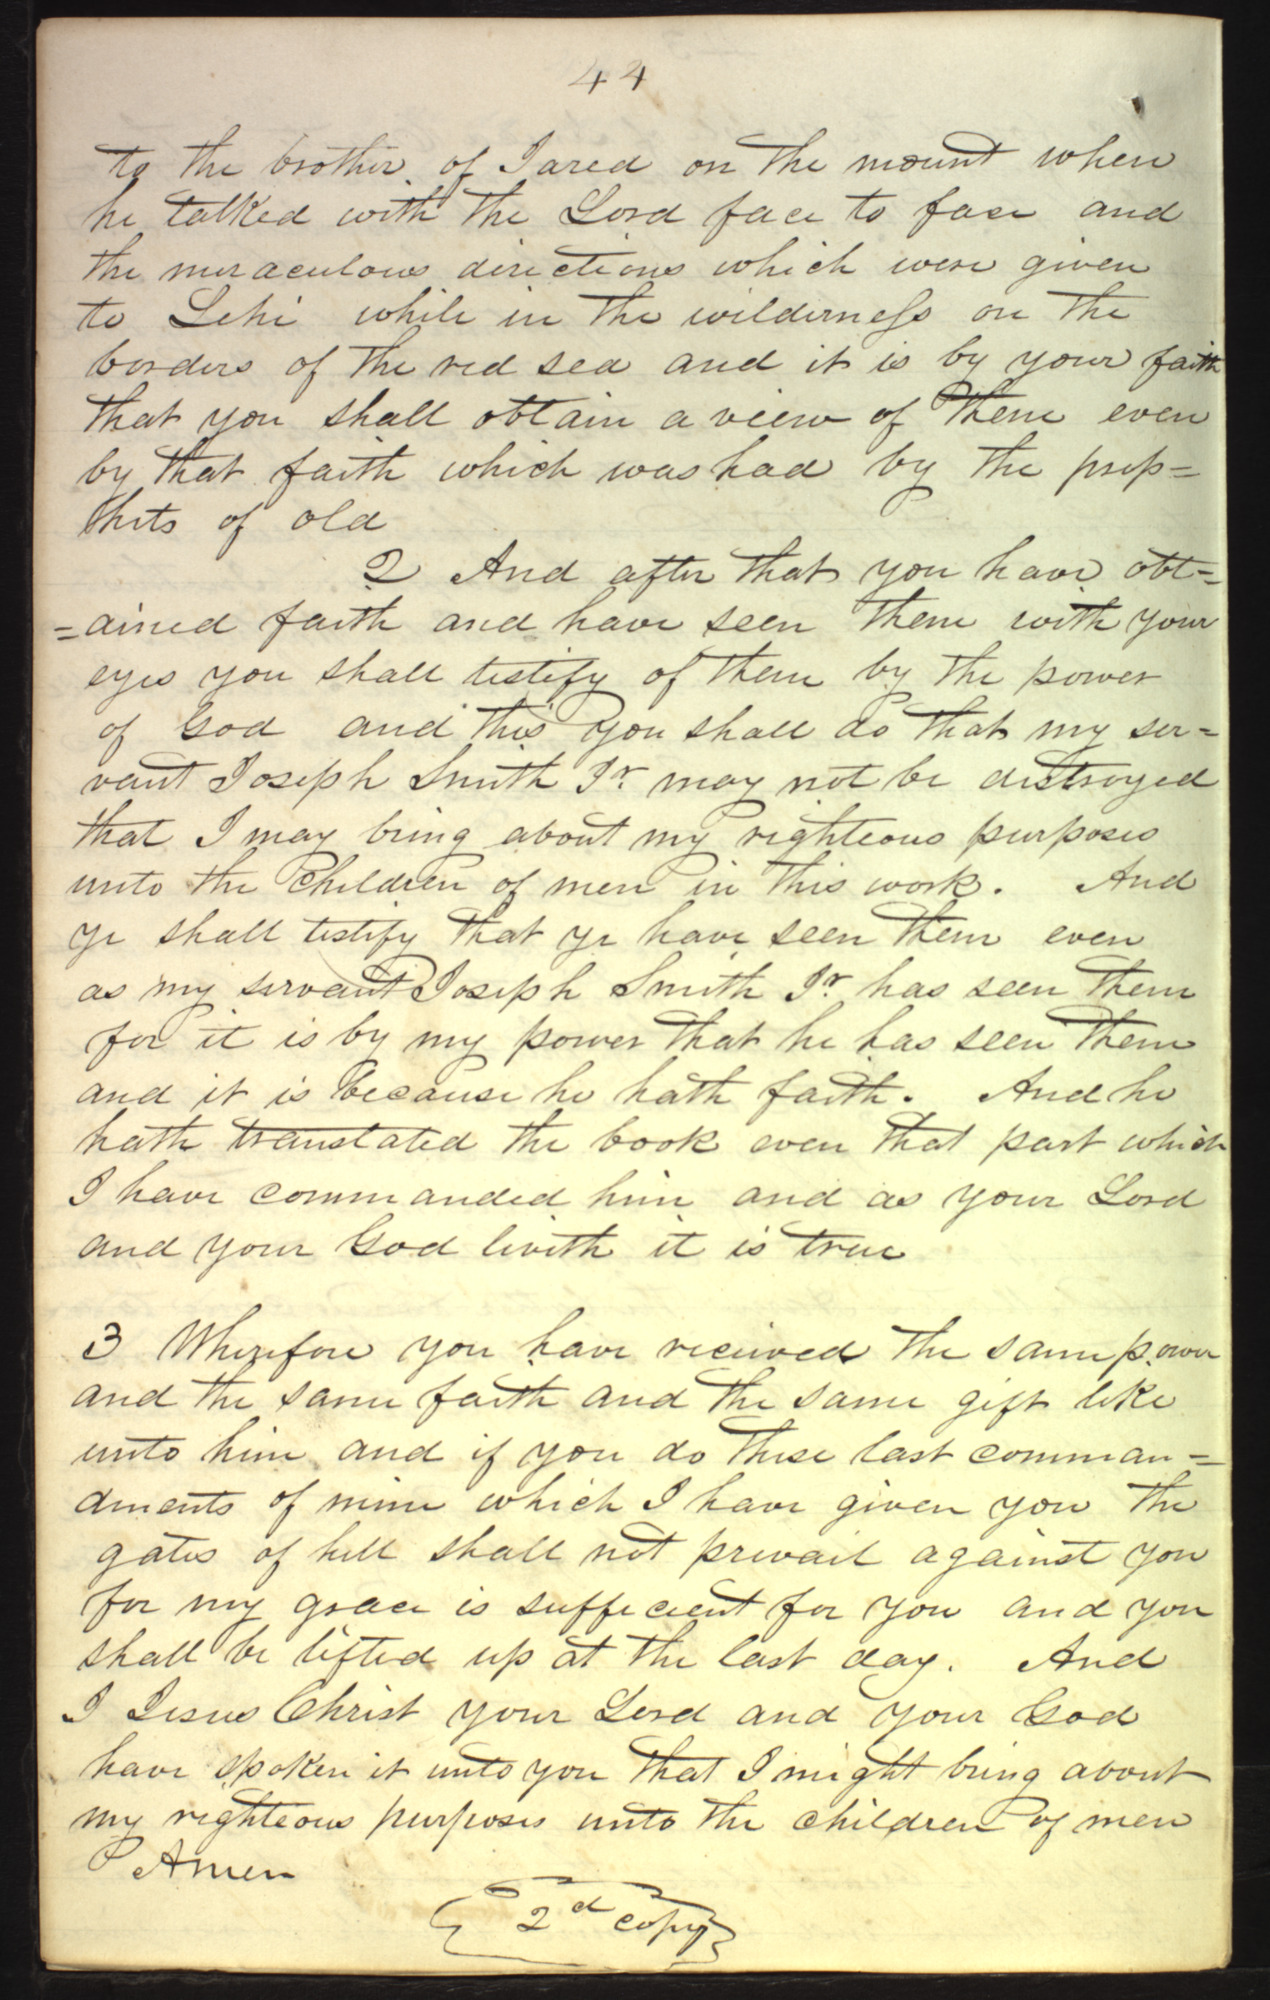 44
to the brother of Jared on the mount when
he talked with the Lord face to face and
the miraculous directions which were given
to Lehi while in the wilderness on the
borders of the red sea and it is by your faith
that you shall obtain a view of them even
by that faith which was had by the prop=
hets of old
2 And after that you have obt=
=ained faith and have seen them with your
eyes you shall testify of them by the power
of God and this you shall do that my ser=
vant Joseph Smith Jr. may not be distroyed
that I may bring about my righteous purposes
unto the children of men in this work. And
ye shall testify that ye have seen them even
as my servant Joseph Smith Jr. has seen them
for it is by my power that he has seen them
and it is because he hath faith. And he
hath translated the book even that part which
I have commanded him and as your Lord
and your God liveth it is true
3 Wherefore you have recieved the same power
and the same faith and the same gift like
unto him and if you do these last comman=
dments of mine which I have given you the
gates of hell shall not prevail against you
for my grace is sufficient for you and you
shall be lifted up at the last day. And
I Jesus Christ your Lord and your God
have spoken it unto you that I might bring about
my righteous purposes unto the children of men
Amen
{ 2d copy }